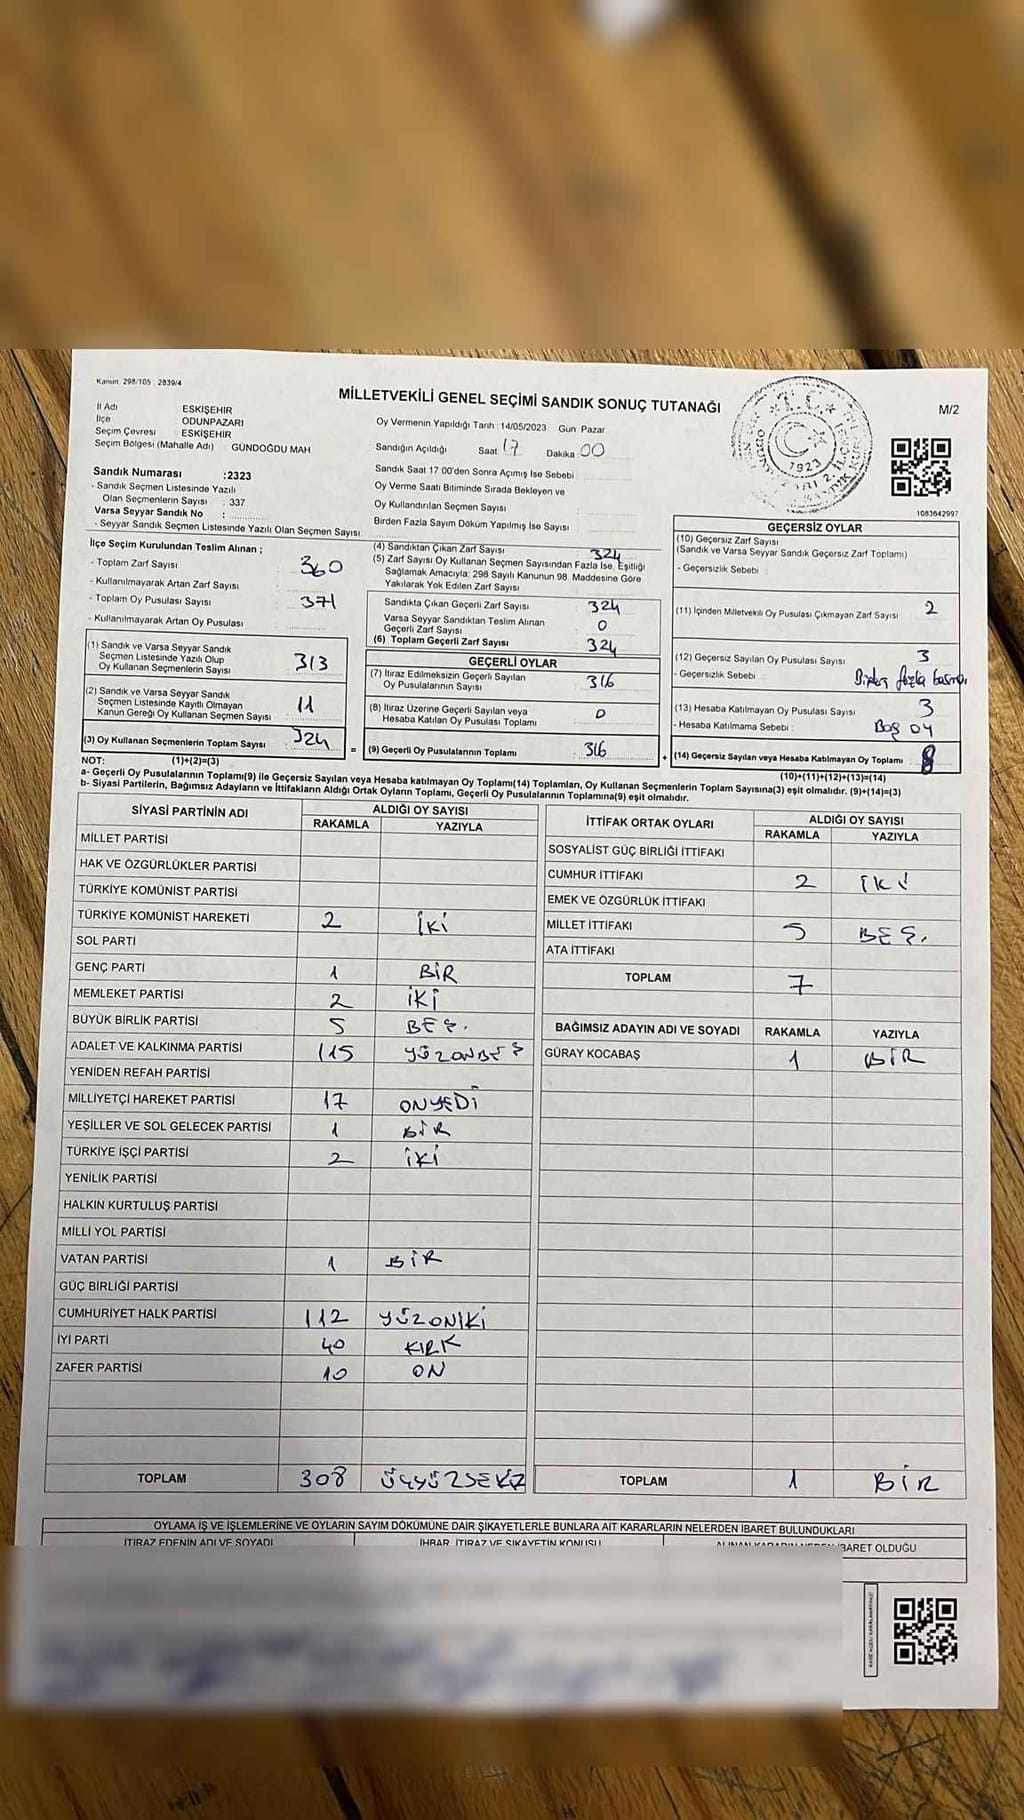 Kanun: 298/105 , 2839/4
MİLLETVEKİLİ GENEL SEÇİMİ SANDIK SONUÇ TUTANAĞI
M/2
İl Adı : ESKİŞEHİR
İlçe : ODUNPAZARI
Seçim Çevresi : ESKİŞEHİR
Seçim Bölgesi (Mahalle Adı) : GÜNDOĞDU MAH
Sandık Numarası :2323
- Sandık Seçmen Listesinde Yazılı
Olan Seçmenlerin Sayısı : 337
Varsa Seyyar Sandık No :
- Seyyar Sandık Seçmen Listesinde Yazılı Olan Seçmen Sayısı:
Oy Vermenin Yapıldığı Tarih : 14/05/2023 Gün Pazar
Sandığın Açıldığı Saat 17 Dakika 00
Sandık Saat 17:00'den Sonra Açımış İse Sebebi :
Oy Verme Saati Bitiminde Sırada Bekleyen ve
Oy Kullandırılan Seçmen Sayısı :
Birden Fazla Sayım Döküm Yapılmış İse Sayısı :
1923
1083642997
İlçe Seçim Kurulundan Teslim Alınan ;
- Toplam Zarf Sayısı : 360
- Kullanılmayarak Artan Zarf Sayısı :
- Toplam Oy Pusulası Sayısı : 371
- Kullanılmayarak Artan Oy Pusulası :
(1) Sandık ve Varsa Seyyar Sandık
Seçmen Listesinde Yazılı Olup
Oy Kullanan Seçmenlerin Sayısı : 313
(2) Sandık ve Varsa Seyyar Sandık
Seçmen Listesinde Kayıtlı Olmayan
Kanun Gereği Oy Kullanan Seçmen Sayısı : 11
(3) Oy Kullanan Seçmenlerin Toplam Sayısı : 324
(1)+(2)=(3)
(4) Sandıktan Çıkan Zarf Sayısı : 324
(5) Zarf Sayısı Oy Kullanan Seçmen Sayısından Fazla İse, Eşitliği
Sağlamak Amacıyla; 298 Sayılı Kanunun 98. Maddesine Göre
Yakılarak Yok Edilen Zarf Sayısı :
Sandıkta Çıkan Geçerli Zarf Sayısı : 324
Varsa Seyyar Sandıktan Teslim Alınan
Geçerli Zarf Sayısı : 0
(6) Toplam Geçerli Zarf Sayısı : 324
GEÇERLİ OYLAR
(7) İtiraz Edilmeksizin Geçerli Sayılan
Oy Pusulalarının Sayısı : 316
(8) İtiraz Üzerine Geçerli Sayılan veya
Hesaba Katılan Oy Pusulası Toplamı : 0
= (9) Geçerli Oy Pusulalarının Toplamı : 316
GEÇERSİZ OYLAR
(10) Geçersiz Zarf Sayısı
(Sandık ve Varsa Seyyar Sandık Geçersiz Zarf Toplamı)
- Geçersizlik Sebebi :
(11) İçinden Milletvekili Oy Pusulası Çıkmayan Zarf Sayısı : 2
(12) Geçersiz Sayılan Oy Pusulası Sayısı : 3
- Geçersizlik Sebebi : Birden fazla basma
(13) Hesaba Katılmayan Oy Pusulası Sayısı : 3
- Hesaba Katılmama Sebebi : Boş oy
+ (14) Geçersiz Sayılan veya Hesaba Katılmayan Oy Toplamı : 8
(10)+(11)+(12)+(13)=(14)
NOT:
a- Geçerli Oy Pusulalarının Toplamı(9) ile Geçersiz Sayılan veya Hesaba katılmayan Oy Toplamı(14) Toplamları, Oy Kullanan Seçmenlerin Toplam Sayısına(3) eşit olmalıdır. (9)+(14)=(3)
b- Siyasi Partilerin, Bağımsız Adayların ve İttifakların Aldığı Ortak Oyların Toplamı, Geçerli Oy Pusulalarının Toplamına(9) eşit olmalıdır.
SİYASİ PARTİNİN ADI ALDIĞI OY SAYISI
RAKAMLA YAZIYLA
MİLLET PARTİSİ
HAK VE ÖZGÜRLÜKLER PARTİSİ
TÜRKİYE KOMÜNİST PARTİSİ
TÜRKİYE KOMÜNİST HAREKETİ 2 İKİ
SOL PARTİ
GENÇ PARTİ 1 BİR
MEMLEKET PARTİSİ 2 İKİ
BÜYÜK BİRLİK PARTİSİ 5 BEŞ.
ADALET VE KALKINMA PARTİSİ 115 YÜZONBEŞ
YENİDEN REFAH PARTİSİ
MİLLİYETÇİ HAREKET PARTİSİ 17 ONYEDİ
YEŞİLLER VE SOL GELECEK PARTİSİ 1 BİR
TÜRKİYE İŞÇİ PARTİSİ 2 İKİ
YENİLİK PARTİSİ
HALKIN KURTULUŞ PARTİSİ
MİLLİ YOL PARTİSİ
VATAN PARTİSİ 1 BİR
GÜÇ BİRLİĞİ PARTİSİ
CUMHURİYET HALK PARTİSİ 112 YÜZONİKİ
İYİ PARTİ 40 KIRK
ZAFER PARTİSİ 10 ON
TOPLAM 308 ÜÇYÜZSEKİZ
İTTİFAK ORTAK OYLARI ALDIĞI OY SAYISI
RAKAMLA YAZIYLA
SOSYALİST GÜÇ BİRLİĞİ İTTİFAKI
CUMHUR İTTİFAKI 2 İKİ
EMEK VE ÖZGÜRLÜK İTTİFAKI
MİLLET İTTİFAKI 5 BEŞ.
ATA İTTİFAKI
TOPLAM 7
BAĞIMSIZ ADAYIN ADI VE SOYADI RAKAMLA YAZIYLA
GÜRAY KOCABAŞ 1 BİR
TOPLAM 1 BİR
OYLAMA İŞ VE İŞLEMLERİNE VE OYLARIN SAYIM DÖKÜMÜNE DAİR ŞİKAYETLERLE BUNLARA AİT KARARLARIN NELERDEN İBARET BULUNDUKLARI
İTİRAZ EDENİN ADI VE SOYADI İHBAR, İTİRAZ VE ŞİKAYETİN KONUSU ALINAN KARARIN NEDEN İBARET OLDUĞU